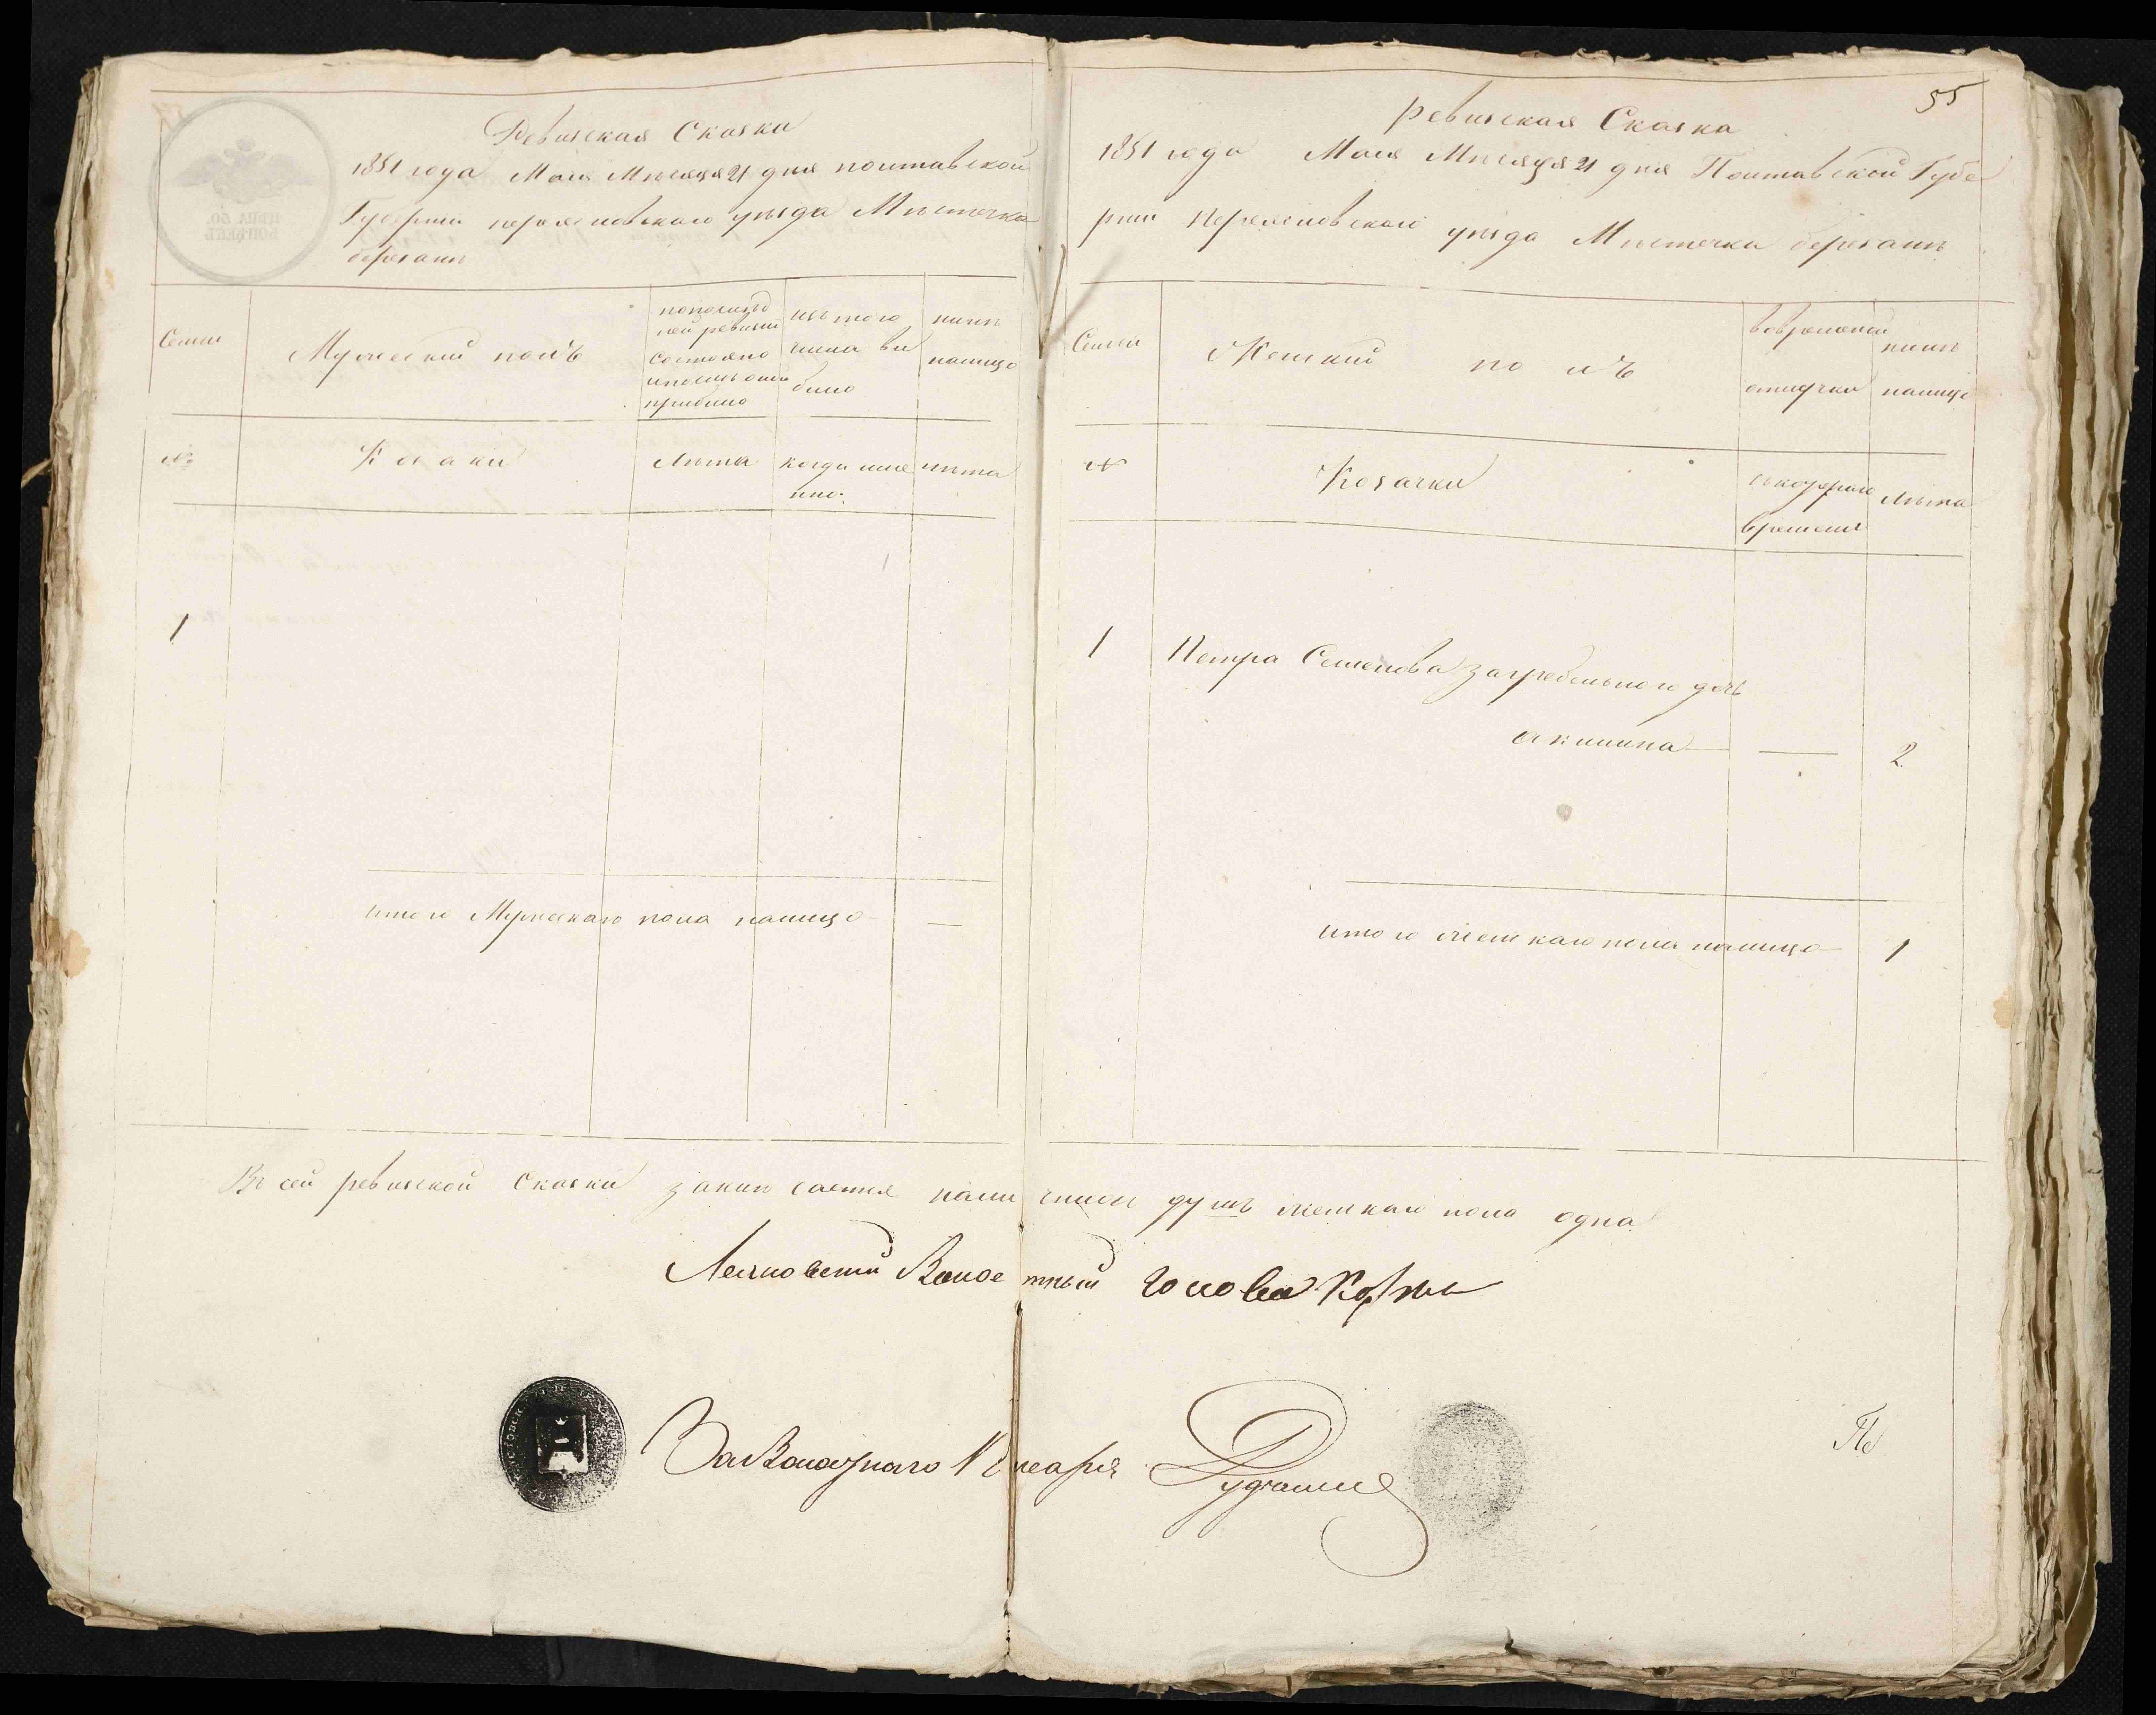 Ревизская Сказка
1851 года Мая Мѣсяца 21 дня полтавской
Губернии переяславского уѣзда Мѣстечка
березани
Семьи
Мужеский полъ
по последней ревизии состояло и после оной прибыло
изъ того числа выбыло
нынѣ налицо
№
Козаки
Лѣта
когда именно
лѣта
1
итого Мужескаго пола налицо —
55
Ревизская Сказка
1851 года Мая Мѣсяца 21 дня Полтавской Губе
рнии Переяславскаго уѣзда Мѣстечка березани
Семьи
Женский полъ
во временной отлучки
нынѣ налицо
№
Козачки
съ котораго времени
Лѣта
1 Петра Семенова Загребельного дочь
акилина — 2
итого женскаго пола налицо 1
Въ сей ревизской Сказки заключается наличныхъ душъ женскаго пола одна
Волостный Голова
За Волостнаго Писаря